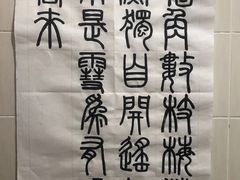 角數枝梅
獨自開遙
不是雪為有
香來